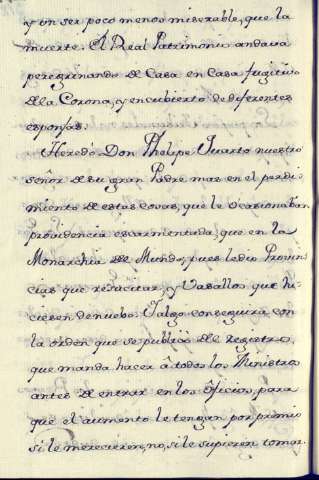 y un ser poco menos miserable, que la
muerte. El Real Patrimonio andava
peregrinando de Casa en Casa fugitivo
de la Corona, y encubierto de diferentes
esponjas.
Heredó Don Phelipe Quarto nuestro
señor de su gran Padre mas en el perdi-
miento de estas cosas, que le ocasionaban
providencia escarmentada, que en la
Monarchia de Mundo, pues le dio Provin-
cias que resucitar, y Vasallos que hi-
ciesen de nuebo. Y algo conseguirá con
la orden que se publicó de registros,
que manda hacer â todos los Ministros
antes de entrar en los oficios, para
que el aumento le tengan por premio
si le merecieren, no, si le supieren tomar.